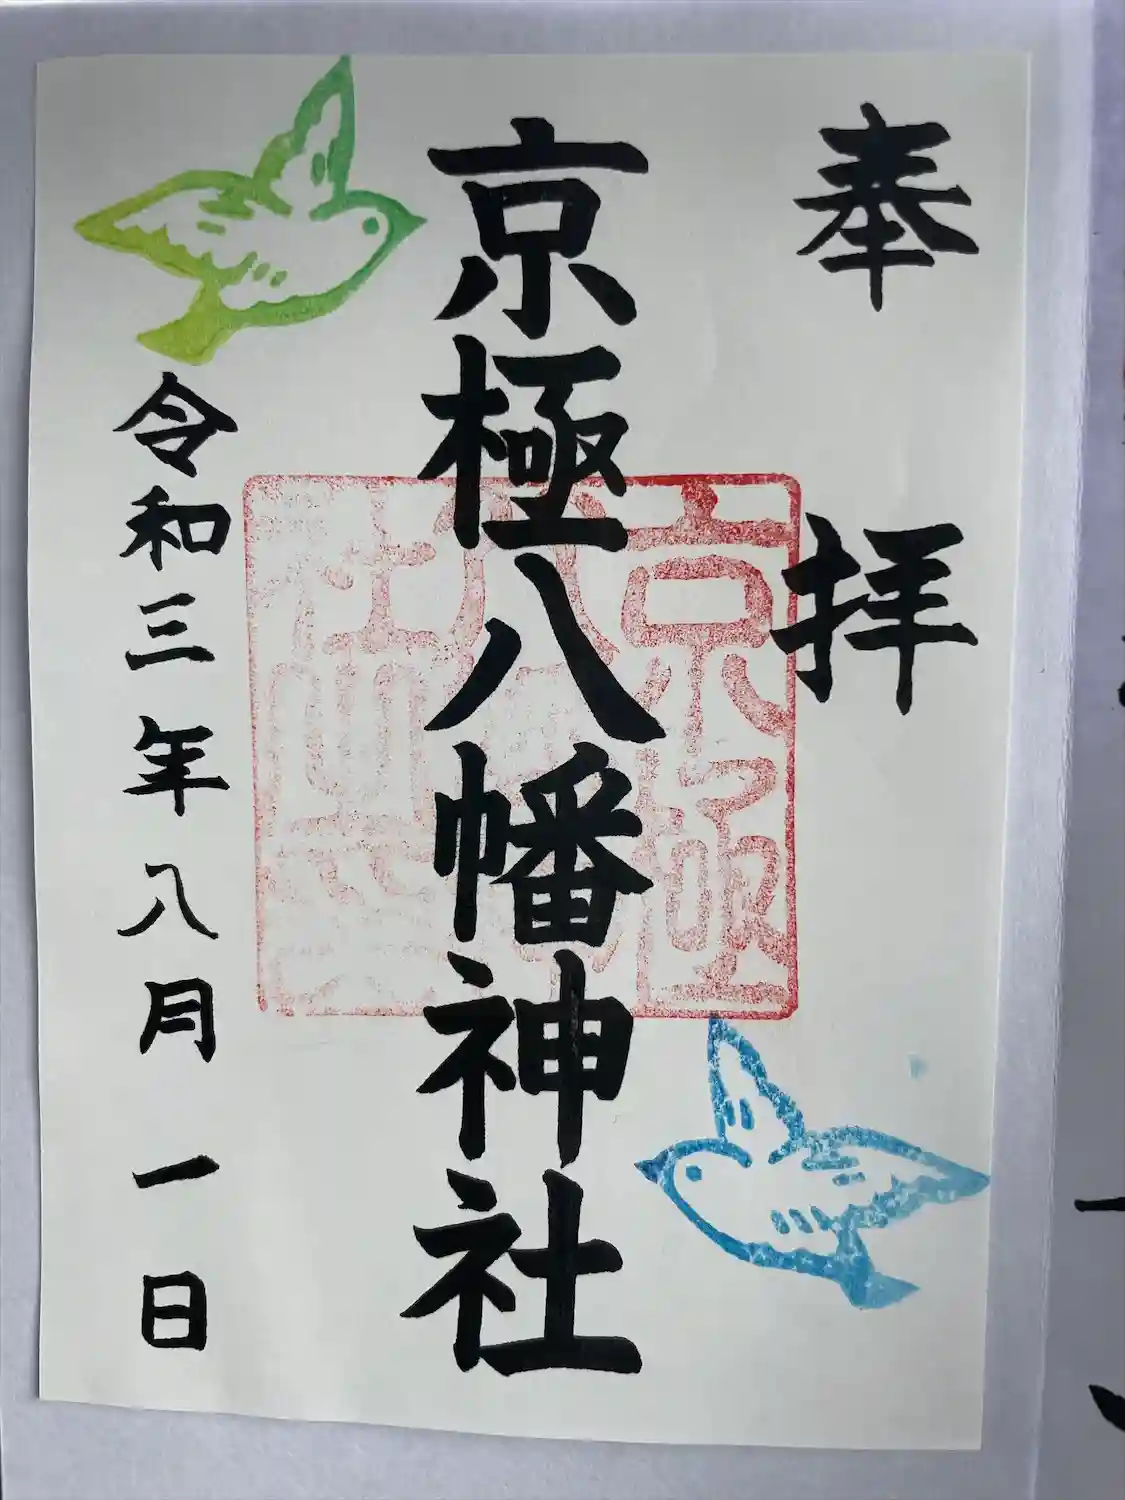 奉拝
京極八幡神社
令和三年八月一日